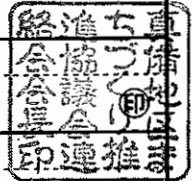 真備地区ま
ちづくり推
進協議会連
絡会会長印
㊞